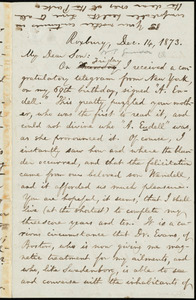 Roxbury, Dec. 14, 1873.
My Dear Son:
On Friday I received a con-
gratulatory telegram from New York
on my 68th birthday, signed "A. En-
dell." This greatly puzzled your moth-
er, who was the first to read it, and
could not divine who "A. Endell" was
as she pronounced it. Of course, I
instantly saw how and where the blun-
der occurred, and that the felicitation
came from our beloved son Wendell,
and it afforded us much pleasure.
You are hopeful, it seems, that I shall
live (at the shortest) to complete my
three-score years and ten. It is a cu-
rious circumstance that Dr. Evans, of
Boston, who is now giving me mag-
netic treatment for my ailments, and
who, like Swedenborg, is able to see
and converse with the inhabitants of